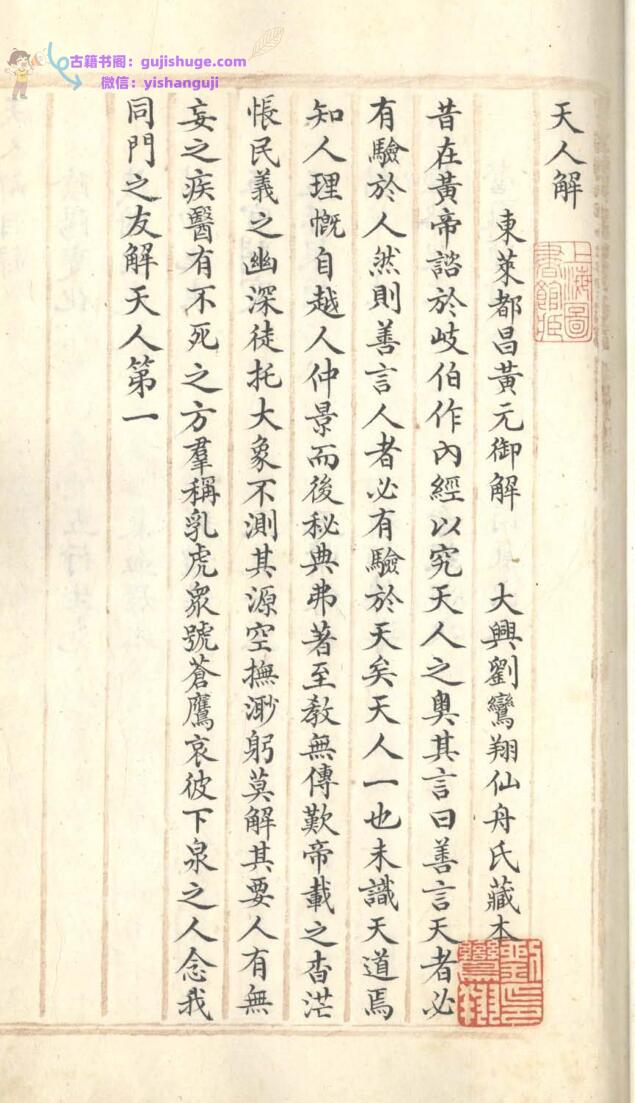 古籍书阁：gujishuge.com
微信：yishanguji
天人解
東萊都昌黃元御解　大興劉鸞翔仙舟氏藏本
昔在黃帝諮於岐伯作內經以究天人之奧其言曰善言天者必
有驗於人然則善言人者必有驗於天矣天人一也未識天道焉
知人理慨自越人仲景而後秘典弗著至敎無傳歎帝載之杳茫
悵民義之幽深徒托大象不測其源空撫渺躬莫解其要人有無
妄之疾醫有不死之方羣稱乳虎衆號蒼鷹哀彼下泉之人念我
同門之友解天人第一
上海圖
書館藏